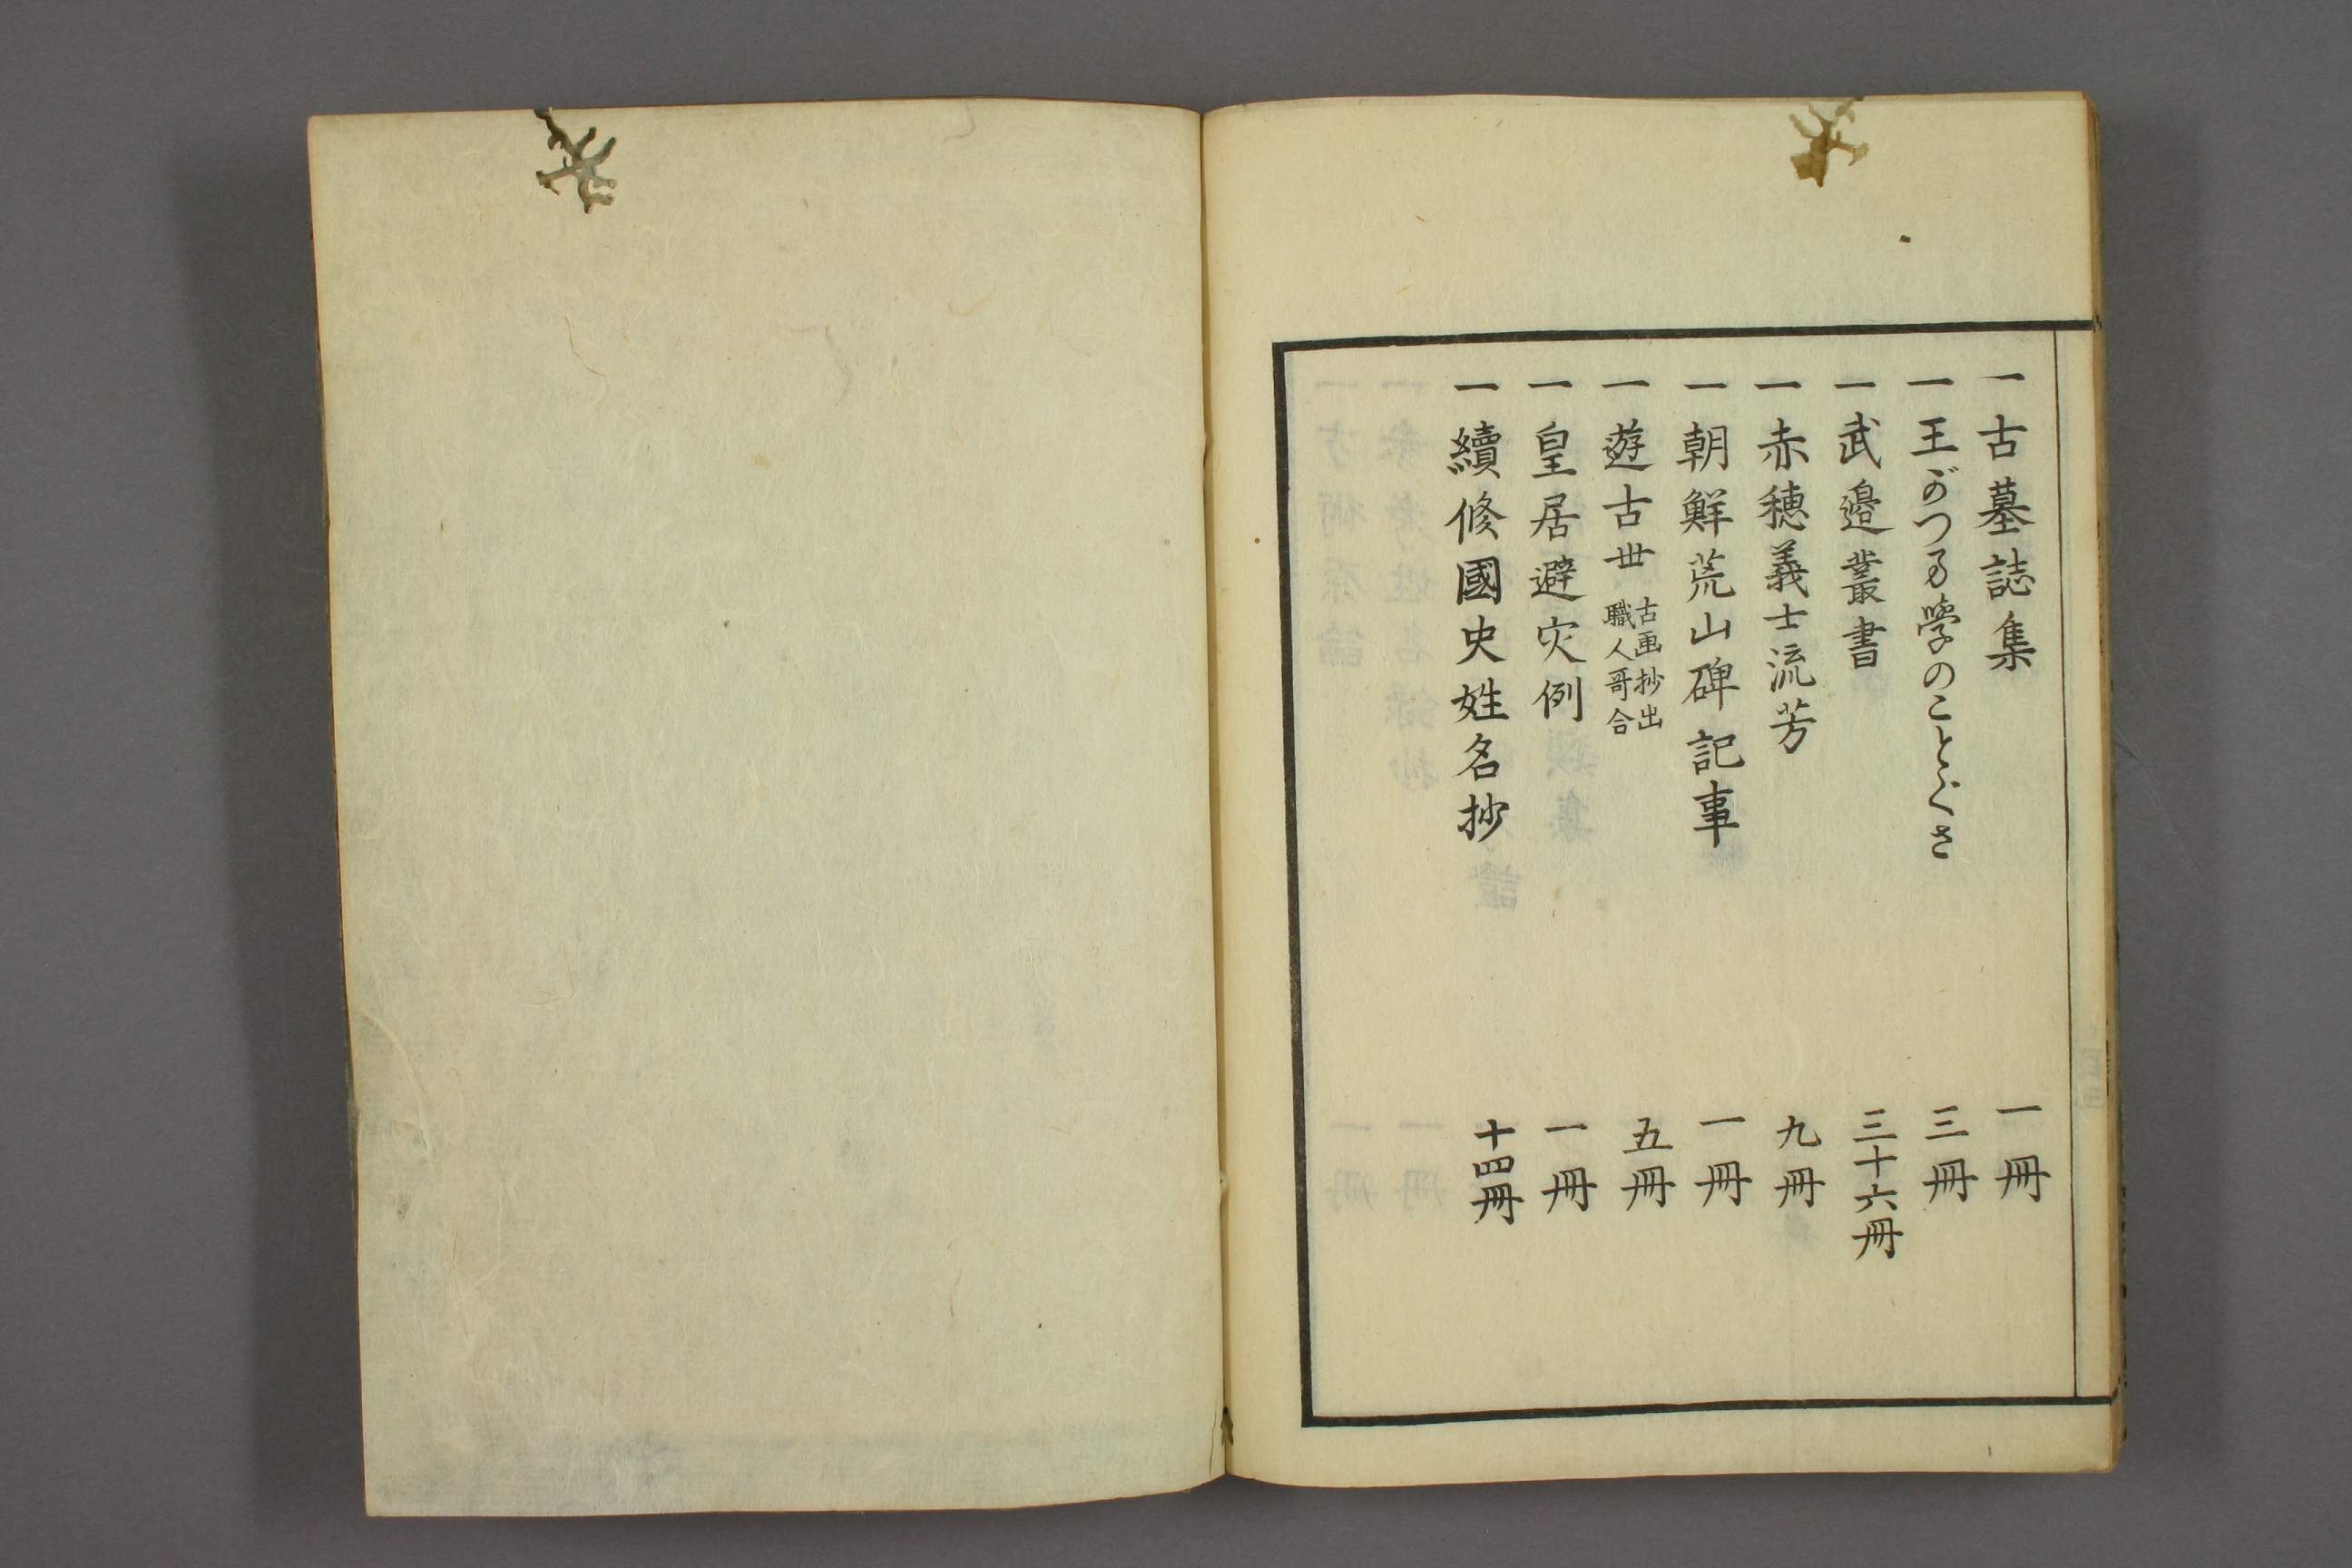 一古墓誌集　一冊
一王がつる學のことぐさ　三冊
一武邉叢書　三十六冊
一赤穂義士流芳　九冊
一朝鮮荒山碑記事　一冊
一遊古世　古画抄出　職人哥合　五冊
一皇居避灾例　一冊
一續修國史姓名抄　十四冊